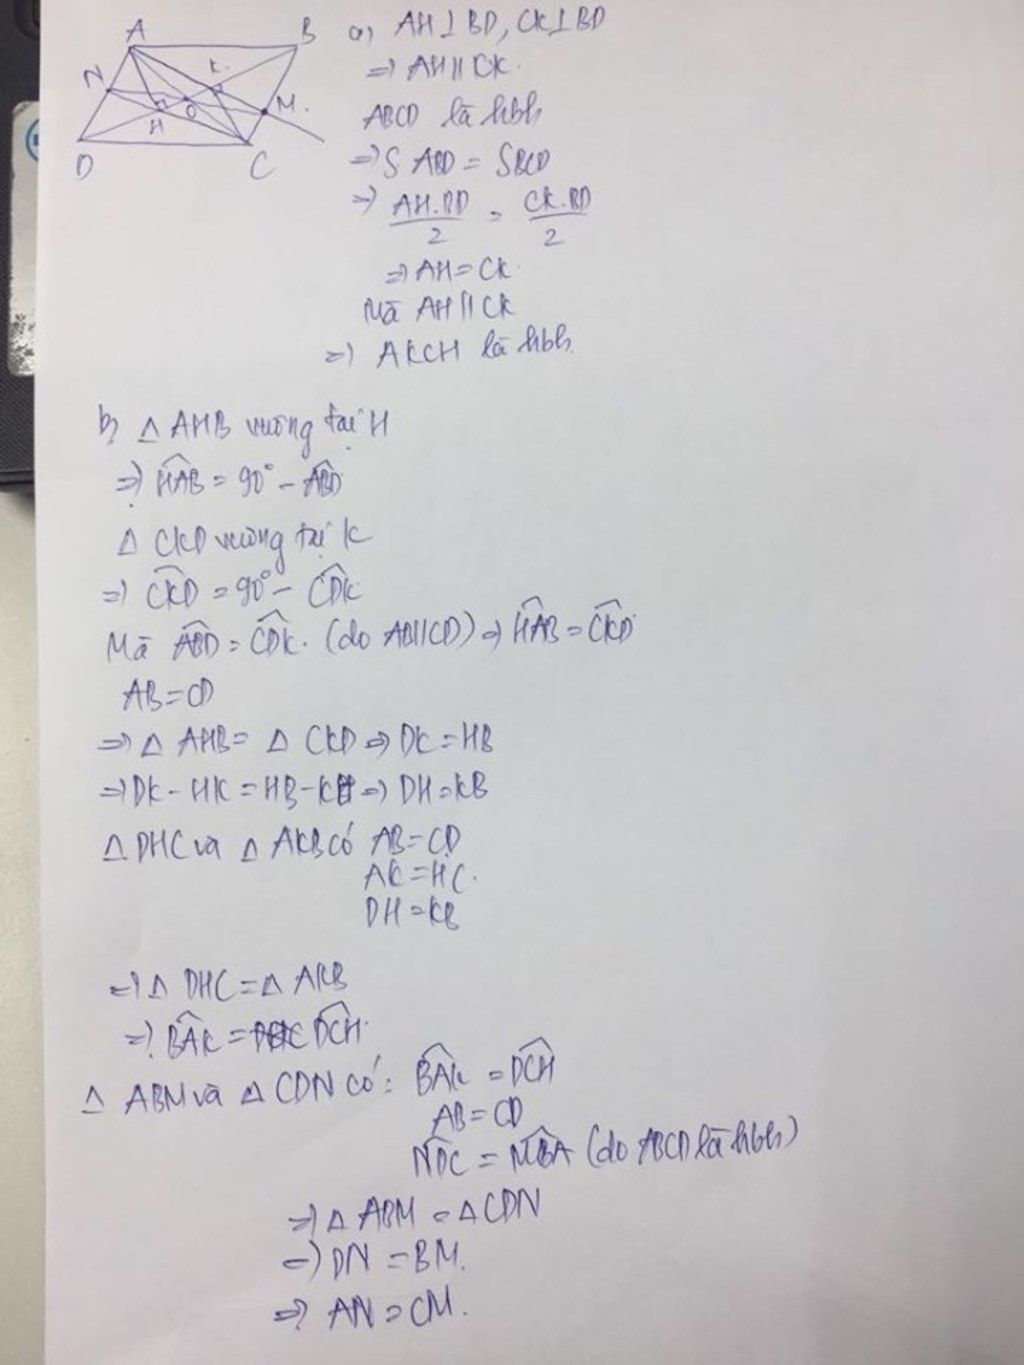 A
B
N
K
M
O
H
D
C
a) AH⊥BD, CK⊥BD
=> AH//CK.
ABCD là hbh
=> S ABD = SBCD
=> AH.BD/2 = CK.BD/2
=> AH = CK.
Mà AH//CK
=> AKCH là hbh.
b) Δ AHB vuông tại H
=> HAB^ = 90° - ABD^
Δ CKD vuông tại K
=> CKD^ = 90° - CDK^
Mà ABD^ = CDK^. (do AB//CD) => HAB^ = CKD^
AB = CD
=> Δ AHB = Δ CKD => DK = HB
=> DK - HK = HB - KH => DH = KB
Δ DHC và Δ AKB có AB = CD
AK = HC.
DH = KB
=> Δ DHC = Δ AKB
=> BAK^ = DCH^.
Δ ABM và Δ CDN có: BAK^ = DCH^
AB = CD
NDC^ = MBA^ (do ABCD là hbh)
=> Δ ABM = Δ CDN
=> DN = BM.
=> AN = CM.